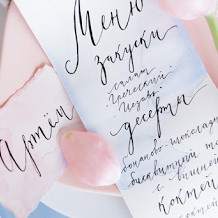 Меню
закуски
салат
Греческий
Цезарь
десерты
бананово-шоколадн
бисквитный то
с вишней
коктей
Артём